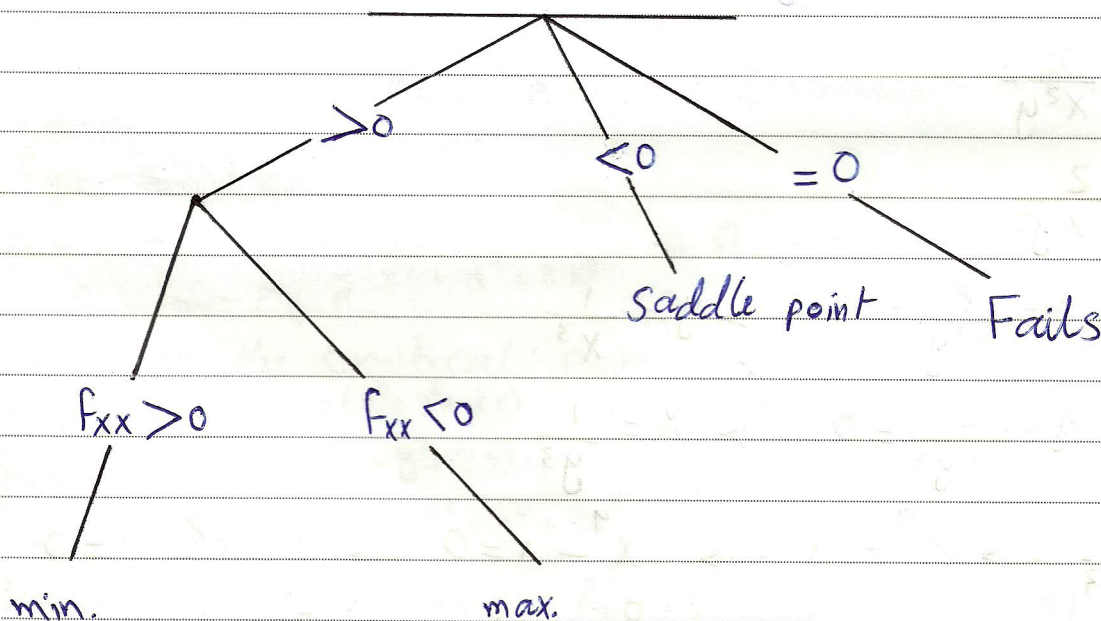 >0
<0
= 0
saddle point
Fails
fxx >0
fxx <0
min.
max.